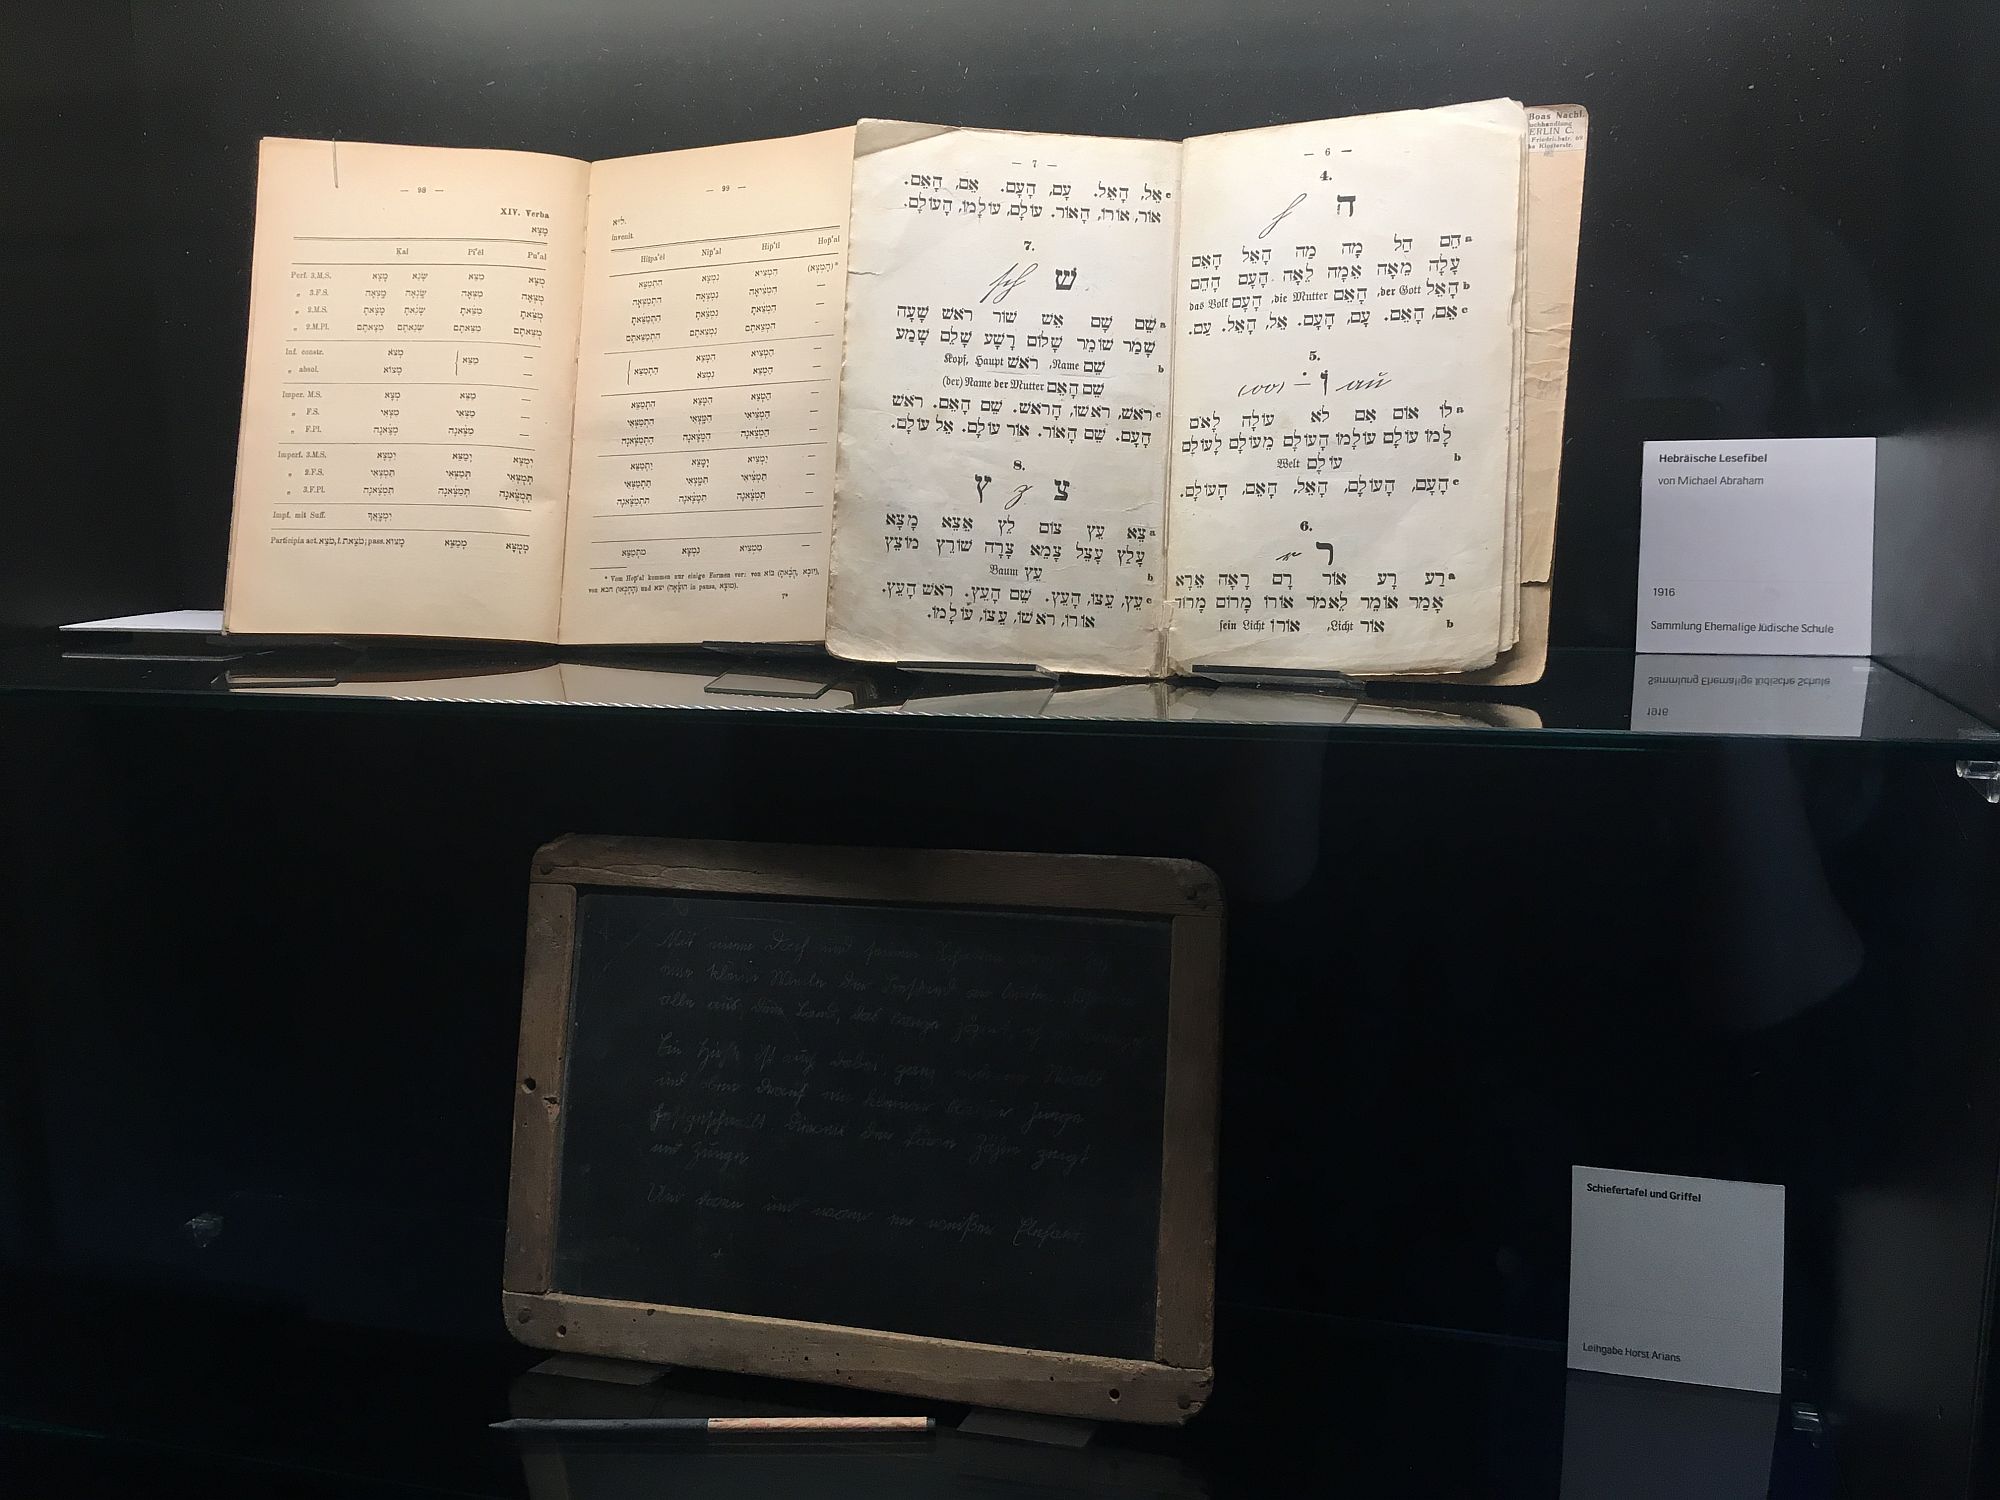 — 98 —
XIV. Verba
מָצָא
Kal Pi'ēl Pu'al
Perf. 3.M.S. מָצָא שָׂנֵא מִצֵּא מֻצָּא
„ 3.F.S. מָצְאָה שָׂנְאָה מִצְּאָה מֻצְּאָה
„ 2.M.S. מָצָאתָ שָׂנֵאתָ מִצֵּאתָ מֻצֵּאתָ
„ 2.M.Pl. מְצָאתֶם שְׂנֵאתֶם מִצֵּאתֶם מֻצֵּאתֶם
Inf. constr. מְצֹא מַצֵּא —
„ absol. מָצוֹא —
Imper. M.S. מְצָא מַצֵּא —
„ F.S. מִצְאִי מַצְּאִי —
„ F.Pl. מְצֶאנָה מַצֶּאנָה —
Imperf. 3.M.S. יִמְצָא יְמַצֵּא יְמֻצָּא
„ 2.F.S. תִּמְצְאִי תְּמַצְּאִי תְּמֻצְּאִי
„ 3.F.Pl. תִּמְצֶאנָה תְּמַצֶּאנָה תְּמֻצֶּאנָה
Impf. mit Suff. יִמְצָאֲךָ
Participia act. מֹצֵא, f. מֹצֵאת; pass. מָצוּא מְמַצֵּא מְמֻצָּא
— 99 —
ל״א.
invenit.
Hitpa'ēl Nip'al Hip'il Hop'al
הִתְמַצֵּא נִמְצָא הִמְצִיא (הֻמְצָא)*
הִתְמַצְּאָה נִמְצְאָה הִמְצִיאָה —
הִתְמַצֵּאתָ נִמְצֵאתָ הִמְצֵאתָ —
הִתְמַצֵּאתֶם נִמְצֵאתֶם הִמְצֵאתֶם —
הִתְמַצֵּא הִמָּצֵא הַמְצִיא —
נִמְצֹא הַמְצֵא —
הִתְמַצֵּא הִמָּצֵא הַמְצֵא —
הִתְמַצְּאִי הִמָּצְאִי הַמְצִיאִי —
הִתְמַצֶּאנָה הִמָּצֶאנָה הַמְצֶאנָה —
יִתְמַצֵּא יִמָּצֵא יַמְצִיא —
תִּתְמַצְּאִי תִּמָּצְאִי תַּמְצִיאִי —
תִּתְמַצֶּאנָה תִּמָּצֶאנָה תַּמְצֶאנָה —
מִתְמַצֵּא נִמְצָא מַמְצִיא —
* Vom Hop'al kommen nur einige Formen vor: von בוֹא (יוּבָא, הֻבָאתָ),
von חבא (הָחְבְּאוּ) und יצא (מוּצָא, הוּצָאָה in pausa).
7*
— 7 —
c אֵל, הָאֵל. עָם, הָעָם. אֵם, הָאֵם.
אוֹר, אוֹרוֹ, הָאוֹר. עוֹלָם, עוֹלָמוֹ, הָעוֹלָם.
7.
שׁ sch
a שֵׁם שָׁם אֵשׁ שׁוֹר רֹאשׁ שָׁעָה
שָׁמַר שׁוֹמֵר שָׁלוֹם רָשָׁע שָׁלֵם שָׁמַע
b שֵׁם Name, רֹאשׁ Kopf, Haupt
שֵׁם הָאֵם (der) Name der Mutter
c רֹאשׁ, רֹאשׁוֹ, הָרֹאשׁ. שֵׁם הָאֵם. רֹאשׁ
הָעָם. שֵׁם הָאוֹר. אוֹר עוֹלָם. אֵל עוֹלָם.
8.
צ z ץ
a צֵא עֵץ צוֹם לֵץ אֵצֵא מָצָא
עָלַץ עָצֵל צָמֵא צָרָה שׁוֹרֵץ מוֹצֵץ
b עֵץ Baum
c עֵץ, עֵצוֹ, הָעֵץ. שֵׁם הָעֵץ. רֹאשׁ הָעֵץ.
אוֹרוֹ, רֹאשׁוֹ, עֵצוֹ, עוֹלָמוֹ.
— 6 —
4.
ה h
a הֵם הַל מָה מַה הָאֵל הָאֵם
עָלָה מֵאָה אֵמָה לֵאָה הָעָם הָהֵם
b הָאֵל der Gott, הָאֵם die Mutter, הָעָם das Volk
c אֵם, הָאֵם. עָם, הָעָם. אֵל, הָאֵל. עַם.
5.
וֹ — ֹ (oo) au
a לוֹ אוֹם אִם לֹא עוֹלָה לָאֹם
לָמוֹ עוֹלָם עוֹלָמוֹ הָעוֹלָם מֵעוֹלָם לָעוֹלָם
b עוֹלָם Welt
c הָעָם, הָעוֹלָם, הָאֵל, הָאֵם, הָעוֹלָם.
6.
ר r
a רַע רָע אוֹר רָם רָאָה אֵרֵא
אָמַר אוֹמֵר לֵאמֹר אוֹרוֹ מָרוֹם מָרוֹר
b אוֹר Licht, אוֹרוֹ sein Licht
Boas Nachf.
Buchhandlung
BERLIN C.
Friedrichstr. 69
Klosterstr.
Hebräische Lesefibel
von Michael Abraham
1916
Sammlung Ehemalige Jüdische Schule
Mit einem Dach und seinem Schatten
eine kleine Weile der Bestand von bunten
alle aus dem Land, das lange zögert,
Ein Hirsch ist auch dabei, ganz Wald
und oben drauf ein kleines blaues Junge
festgeschnallt. dieweil der Löwe Zähne zeigt
und Zunge
Und dann und wann ein weißer Elefant.
Schiefertafel und Griffel
Leihgabe Horst Arians